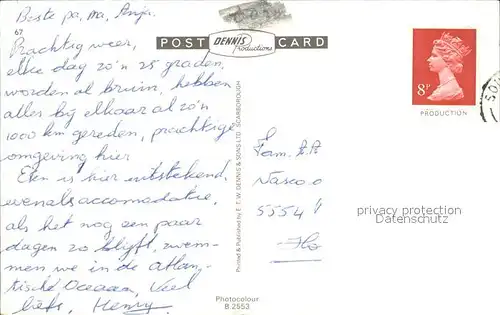 Beste pa, ma, Anja.
67
POST CARD
DENNIS
Productions
Prachtig weer,
elke day zo'n 25 graden,
worden al bruin, hebben
alles bij elkaar al zo'n
1000 km gereden, prachtige
omgeving hier
Eten is hier uitstekend,
evenals accomadatie,
als het nog een paar
dagen zo blijft, zwem-
men we in de atlan-
tische Oceaan, Veel
liefs, Henry.
Printed & Published by E. T. W. DENNIS & SONS LTD SCARBOROUGH
Photocolour
B.2553
8P
PRODUCTION
Fam.
5554
privacy protection
Datenschutz